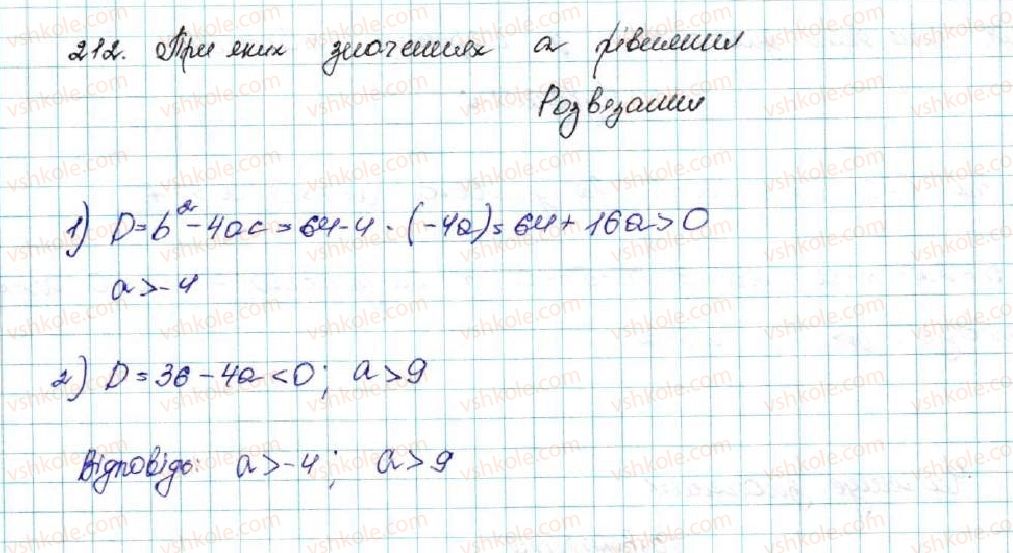 212. При яких значеннях a рівняння
Розвязання
1) D=b²-4ac=64-4·(-4a)=64+16a>0
a>-4
2) D=36-4a<0; a>9
Відповідь: a>-4; a>9